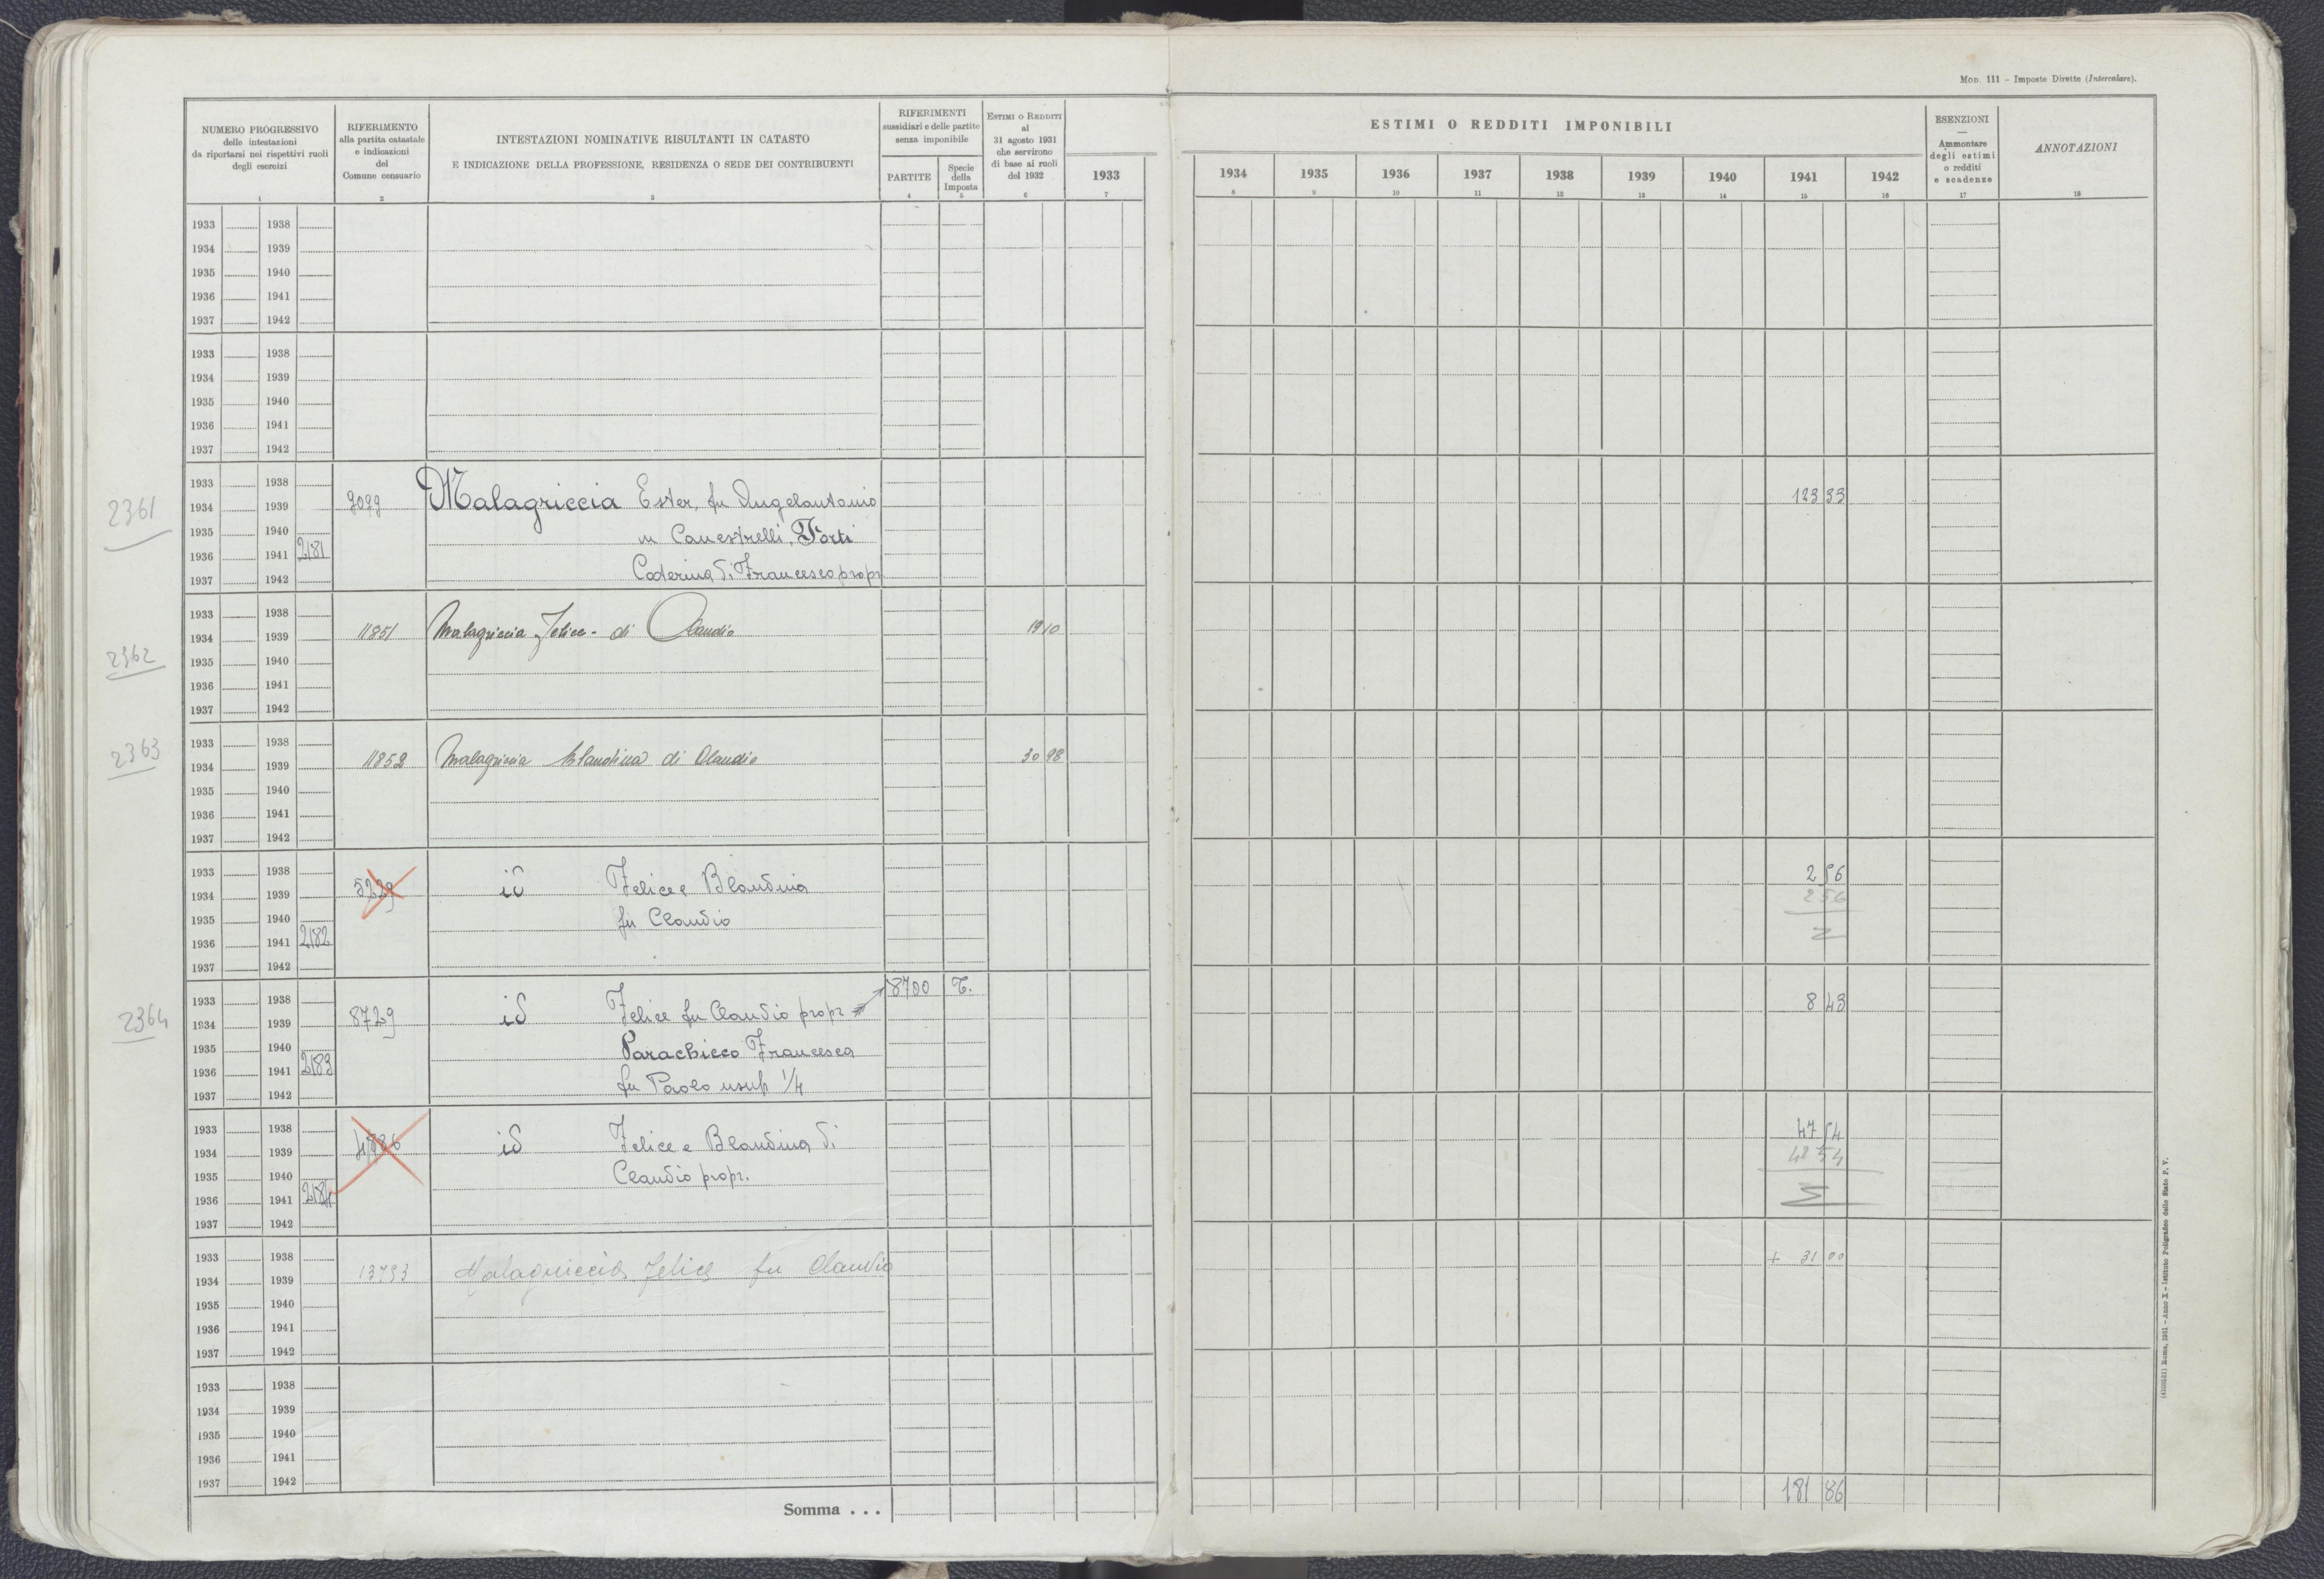 Mod. 111 - Imposte Dirette (Intercalare).
NUMERO PROGRESSIVO
delle intestazioni
da riportarsi nei rispettivi ruoli
degli esercizi
1
RIFERIMENTO
alla partita catastale
e indicazioni
del
Comune censuario
2
INTESTAZIONI NOMINATIVE RISULTANTI IN CATASTO
E INDICAZIONE DELLA PROFESSIONE, RESIDENZA O SEDE DEI CONTRIBUENTI
3
RIFERIMENTI
sussidiari e delle partite
senza imponibile
PARTITE
4
Specie
della
Imposta
5
ESTIMI O REDDITI
al
31 agosto 1931
che servirono
di base ai ruoli
del 1932
6
1933
7
ESTIMI O REDDITI IMPONIBILI
1934 1935 1936 1937 1938 1939 1940 1941 1942
8 9 10 11 12 13 14 15 16
ESENZIONI
—
Ammontare
degli estimi
o redditi
e scadenze
17
ANNOTAZIONI
18
1933 1938
1934 1939
1935 1940
1936 1941
1937 1942
1933 1938
1934 1939
1935 1940
1936 1941
1937 1942
1933 1938
2361 1934 1939 9099 Malagriccia Ester, fu Angelantonio 123 33
1935 1940 in Canestrelli, Forti
1936 1941 2181
1937 1942 Caterina di Francesco propr
1933 1938
1934 1939 11851 Malagriccia Felice di Claudio 19 10
2362 1935 1940
1936 1941
1937 1942
1933 1938
2363 1934 1939 11852 Malagriccia Blandina di Claudio 30 98
1935 1940
1936 1941
1937 1942
1933 1938 2 56
1934 1939 5229 id Felice e Blandina 2 56
1935 1940 fu Claudio
1936 1941 2182
1937 1942
8700 T.
1933 1938 8 43
2364 1934 1939 8729 id Felice fu Claudio propr
1935 1940 Parachicco Francesca
1936 1941 2183
1937 1942 fu Paolo usuf 1/4
1933 1938 47 54
1934 1939 4886 id Felice e Blandina di
1935 1940 Claudio propr.
1936 1941 2184
1937 1942
1933 1938 + 31 00
1934 1939 13793 Malagriccia Felice fu Claudio
1935 1940
1936 1941
1937 1942
1933 1938
1934 1939
1935 1940
1936 1941
1937 1942
Somma . . . 181 86
Roma, 1931 - Anno X - Istituto Poligrafico dello Stato P. V.